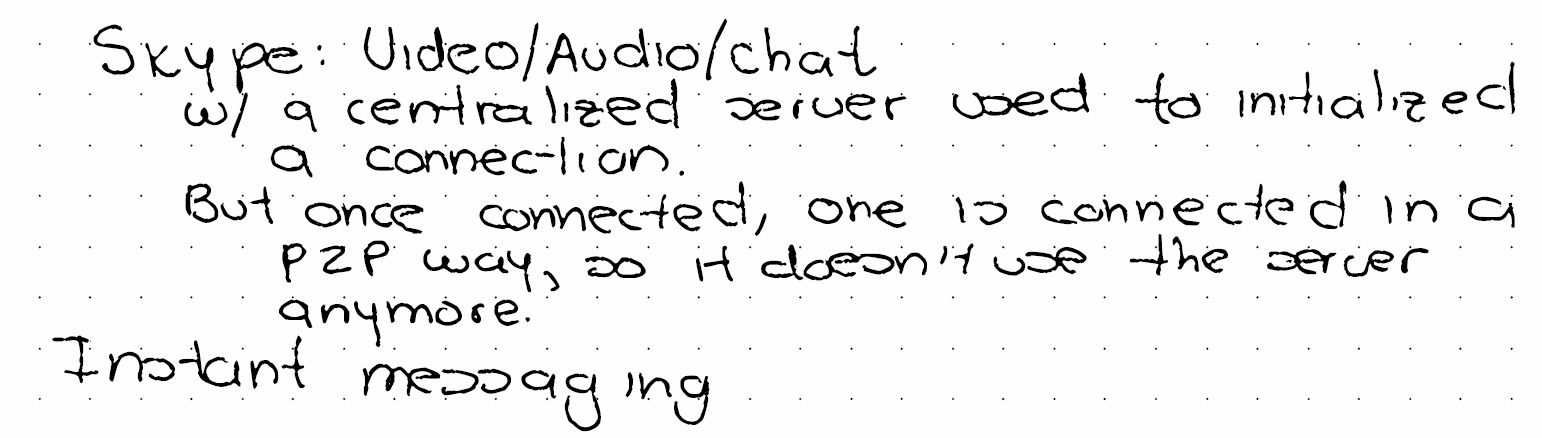 Skype: Video/Audio/chat
w/ a centralized server used to initialized
a connection.
But once connected, one is connected in a
P2P way, so it doesn't use the server
anymore.
Instant messaging